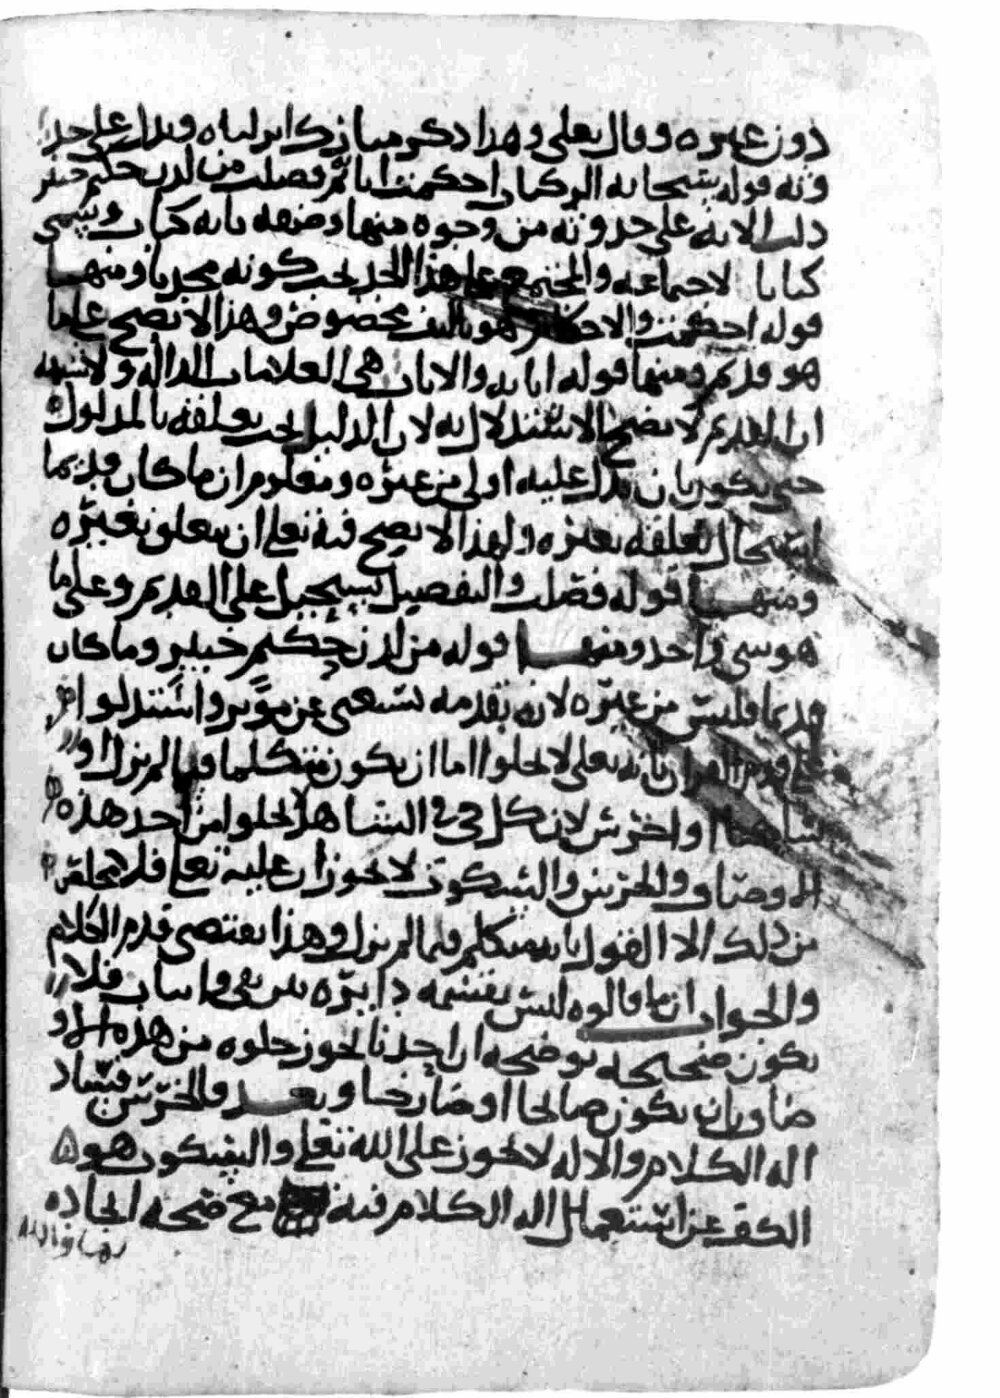 دون غيره وقال تعلى وهذا ذكر مبارك انزلناه ويدل على حد
وثه قوله سبحانه الر كتاب احكمت اياته ثم فصلت من لدن حكيم خبير
دلت الاية على حدوثه من وجوه منها وصفه بانه كتاب وسمى
كتابا لاجتماعه والمجتمع على هذا الحد يجب كونه محدثا ومنها
قوله احكمت والاحكام هو تاليف مخصوص وهذا لا يصح على ما
هو قديم ومنها قوله اياته والايات هي العلامات الدالة ولا شبهة
ان القديم لا يصح الاستدلال به لان الدليل يجب تعلقه بالمدلول
حتى يكون بان يدل عليه اولى من غيره ومعلوم ان ما كان قديما
استحال تعلقه بغيره ولهذا لا يصح فيه تعلى ان يتعلق بغيره
ومنها قوله فصلت والتفصيل يستحيل على القديم وعلى ما
هو شي واحد ومنها قوله من لدن حكيم خبير وما كان
قديما فليس من غيره لانه بقدمه يستغنى عن موثر واستدلوا
على قدم القران بانه تعلى لا يخلوا اما ان يكون متكلما فيما لم يزل او
ساكتا او اخرس لان كل حي في الشاهد لا يخلوا من احد هذه
الاوصاف والخرس والسكوت لا يجوزان عليه تعلى فلا
من ذلك الا القول بانه متكلم فيما لم يزل وهذا يقتضي قدم الكلام
والجواب ان ما قالوه ليس بقسمة دايرة بين نفي واثبات فلا
يكون صحيحة يوضحه ان احدنا يجوز خلوه من هذه الاو
صاف بان يكون صالحا او صارخا وبعد والخرس فساد
الة الكلام والالة لا تجوز على الله تعلى والسكوت هو
الكف عن استعمال الة الكلام فيه مع صحة